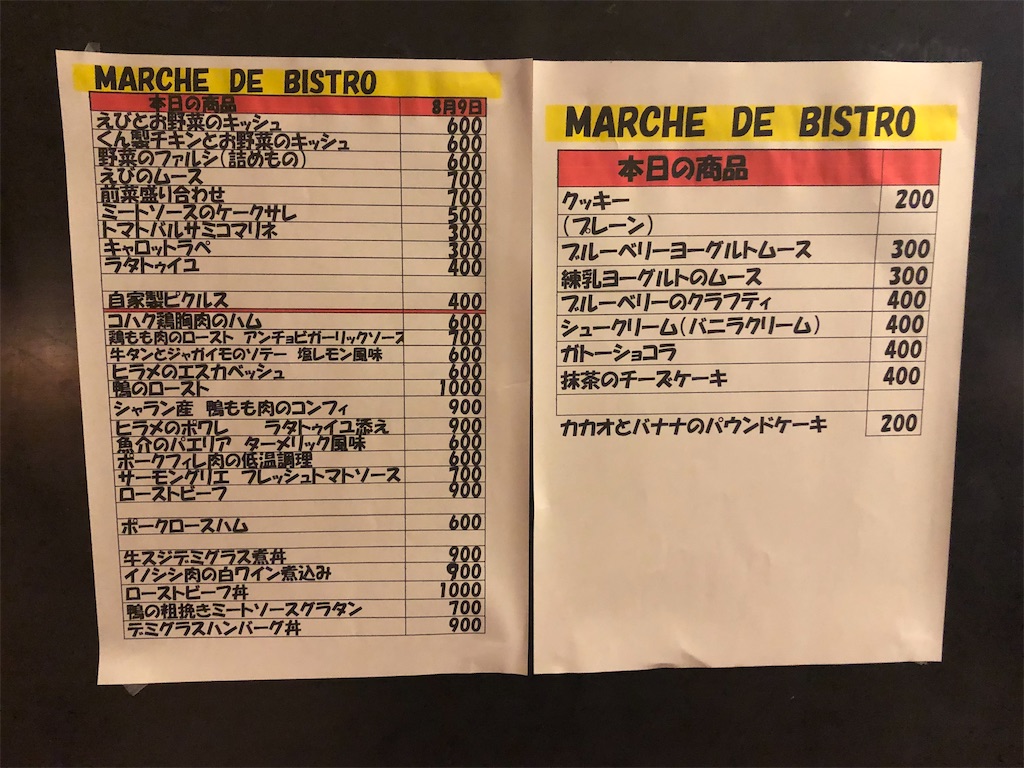 MARCHE DE BISTRO
本日の商品 8月9日
えびとお野菜のキッシュ 600
くん製チキンとお野菜のキッシュ 600
野菜のファルシ(詰めもの) 600
えびのムース 700
前菜盛り合わせ 700
ミートソースのケークサレ 500
トマトバルサミコマリネ 300
キャロットラペ 300
ラタトゥイユ 400
自家製ピクルス 400
コハク鶏胸肉のハム 600
鶏もも肉のロースト アンチョビガーリックソース 700
牛タンとジャガイモのソテー 塩レモン風味 600
ヒラメのエスカベッシュ 600
鴨のロースト 1000
シャラン産 鴨もも肉のコンフィ 900
ヒラメのポワレ ラタトゥイユ添え 900
魚介のパエリア ターメリック風味 600
ポークフィレ肉の低温調理 600
サーモングリエ フレッシュトマトソース 700
ローストビーフ 900
ポークロースハム 600
牛スジデミグラス煮丼 900
イノシシ肉の白ワイン煮込み 900
ローストビーフ丼 1000
鴨の粗挽きミートソースグラタン 700
デミグラスハンバーグ丼 900
MARCHE DE BISTRO
本日の商品
クッキー 200
(プレーン)
ブルーベリーヨーグルトムース 300
練乳ヨーグルトのムース 300
ブルーベリーのクラフティ 400
シュークリーム(バニラクリーム) 400
ガトーショコラ 400
抹茶のチーズケーキ 400
カカオとバナナのパウンドケーキ 200